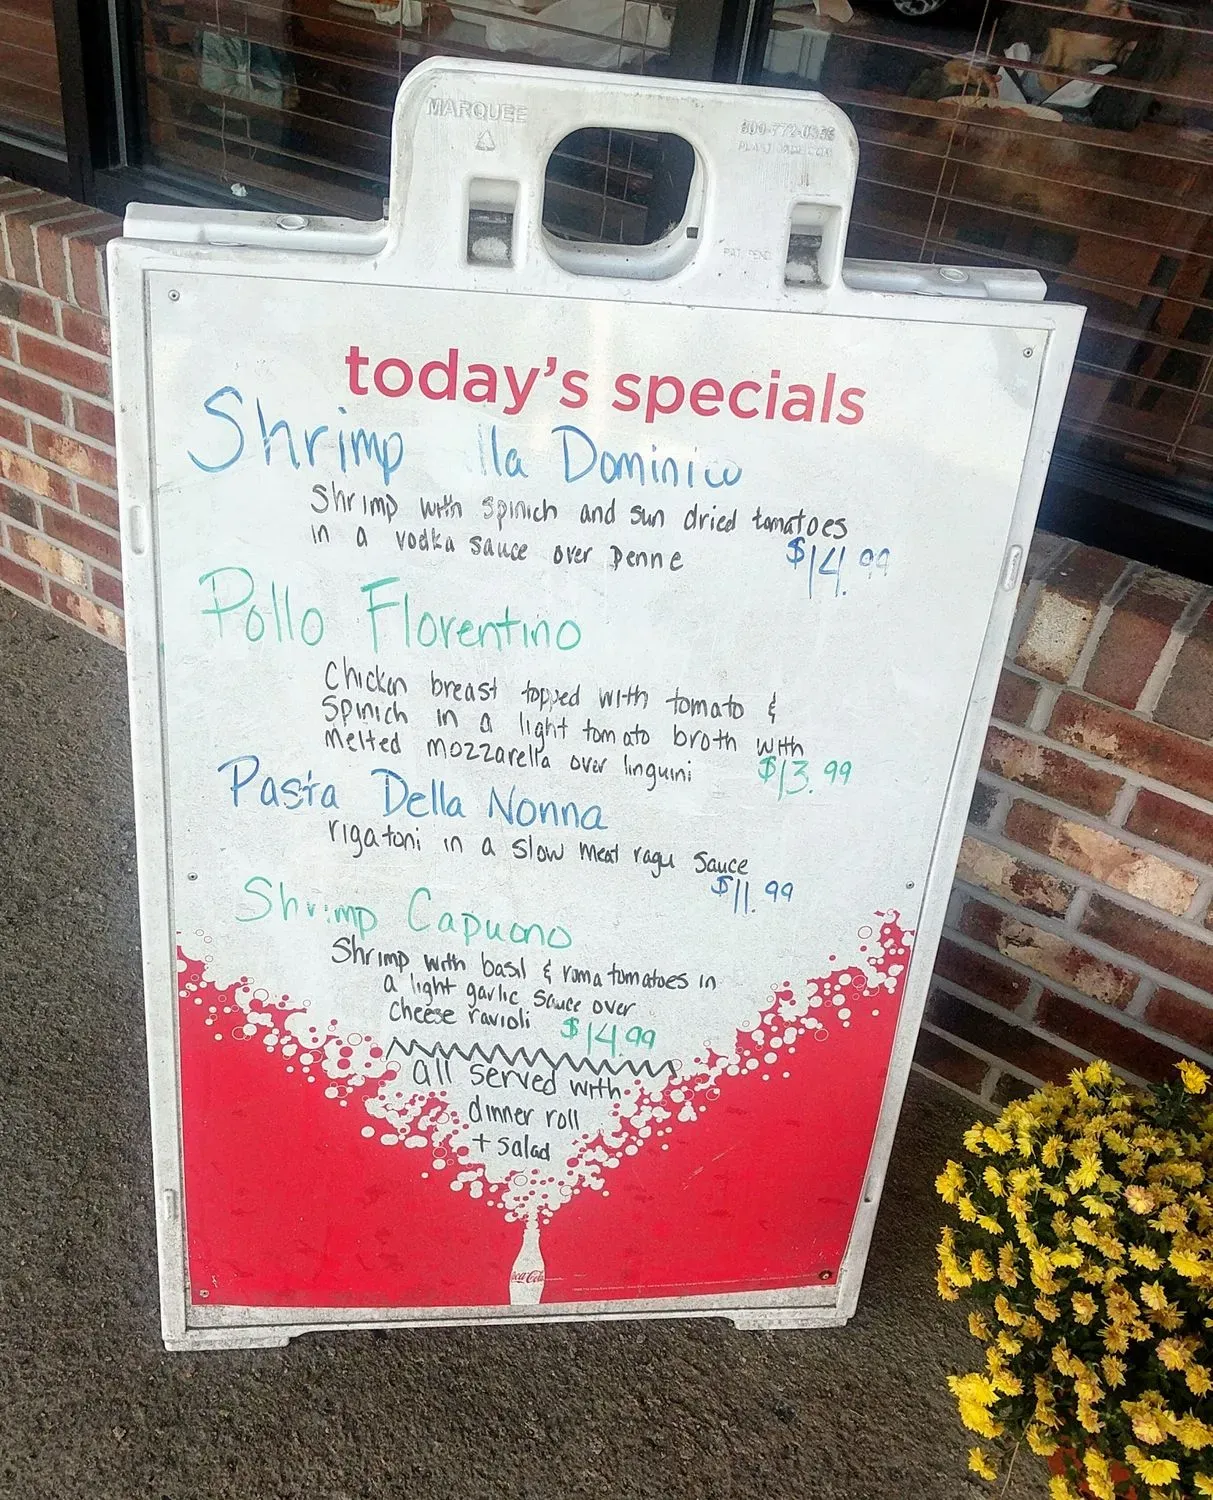 MARQUEE
today's specials
Shrimp lla Dominico
Shrimp with Spinich and sun dried tomatoes
in a vodka sauce over penne $14.99
Pollo Florentino
Chicken breast topped with tomato &
Spinich in a light tomato broth with
melted mozzarella over linguini $13.99
Pasta Della Nonna
rigatoni in a slow meat ragu sauce
$11.99
Shrimp Capuono
Shrimp with basil & roma tomatoes in
a light garlic sauce over
cheese ravioli $14.99
all served with
dinner roll
+ salad
Coca-Cola